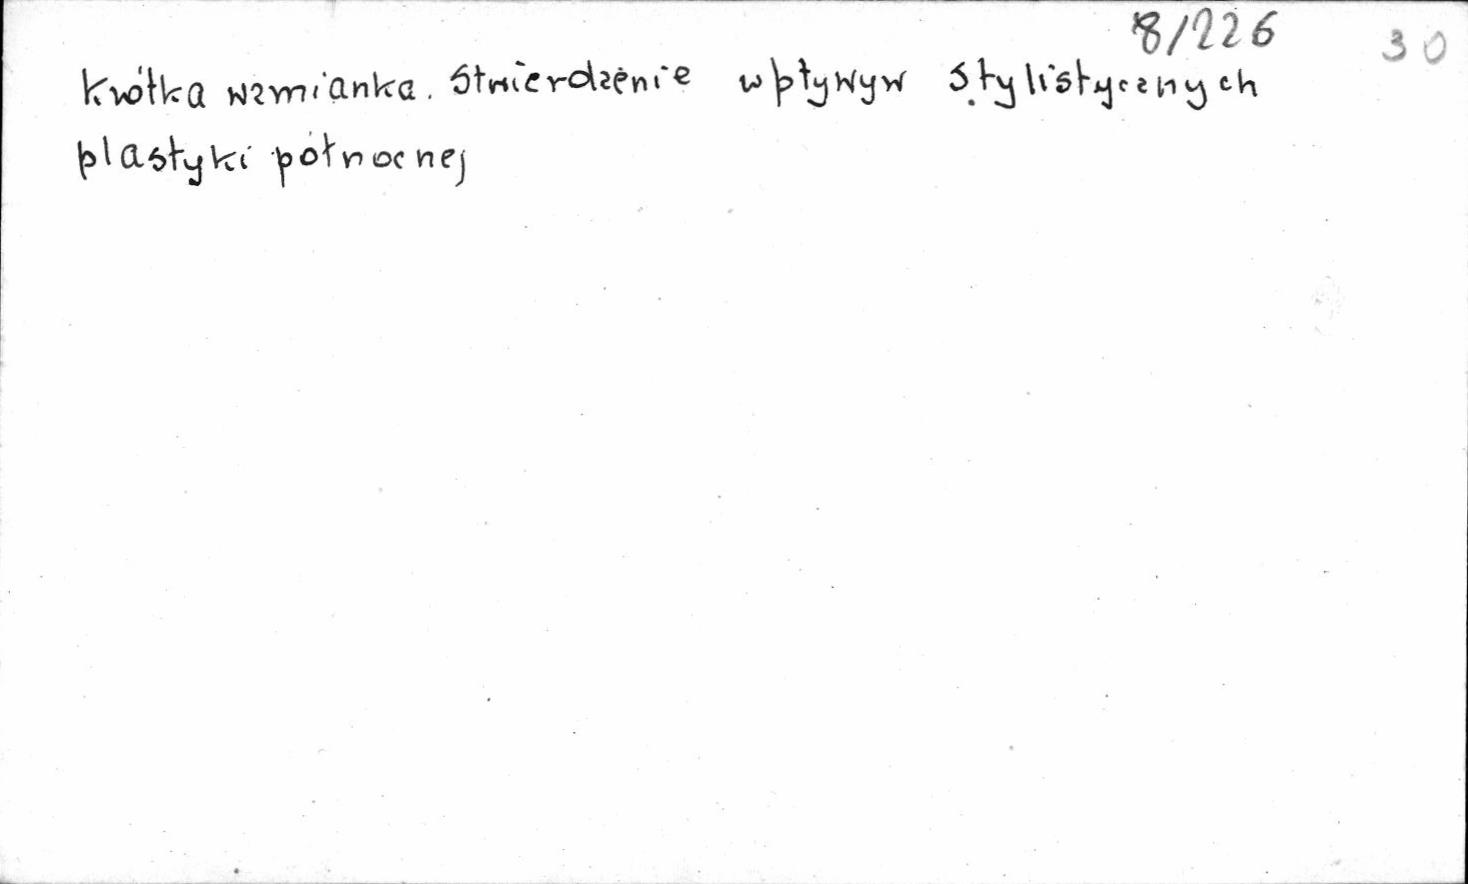 8/226 30
Krótka wzmianka. Stwierdzenie wpływyw stylistycznych
plastyki północnej